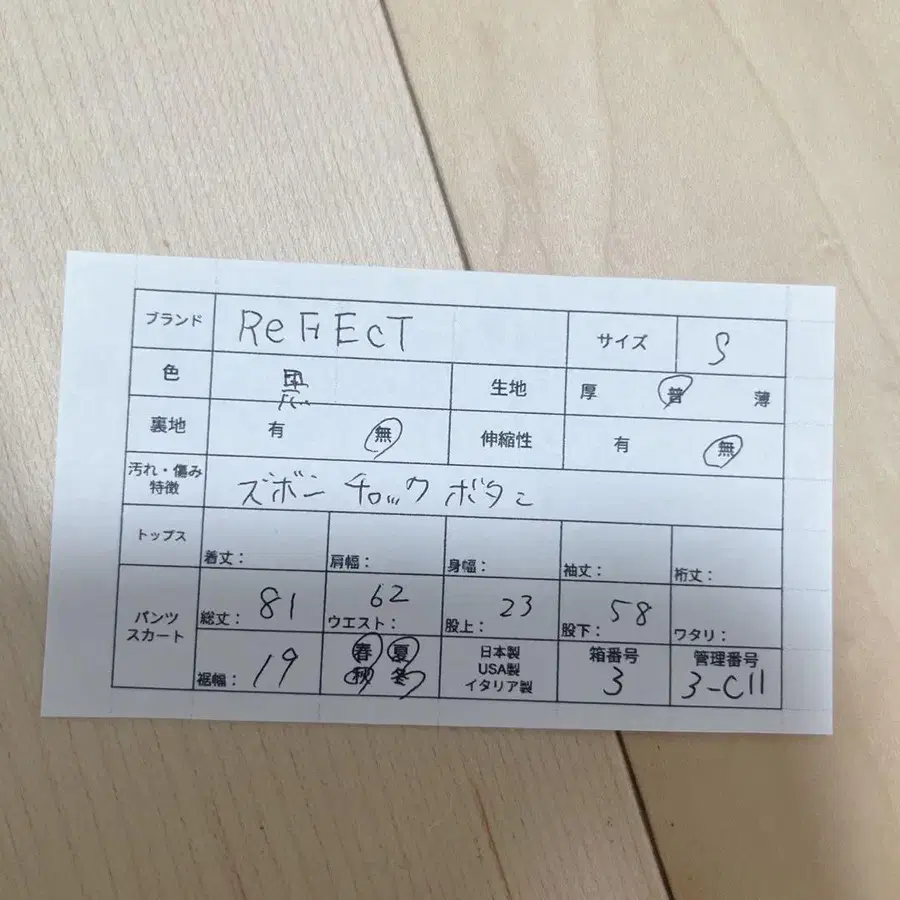 ブランド ReFEcT サイズ S
色 黒 生地 厚 普 薄
裏地 有 無 伸縮性 有 無
汚れ・傷み
特徴 ズボン チロック ボタン
トップス 着丈: 肩幅: 身幅: 袖丈: 裄丈:
パンツ
スカート
総丈: 81 ウエスト: 62 股上: 23 股下: 58 ワタリ:
裾幅: 19
春 夏
秋 冬
日本製
USA製
イタリア製
箱番号
3
管理番号
3-C11